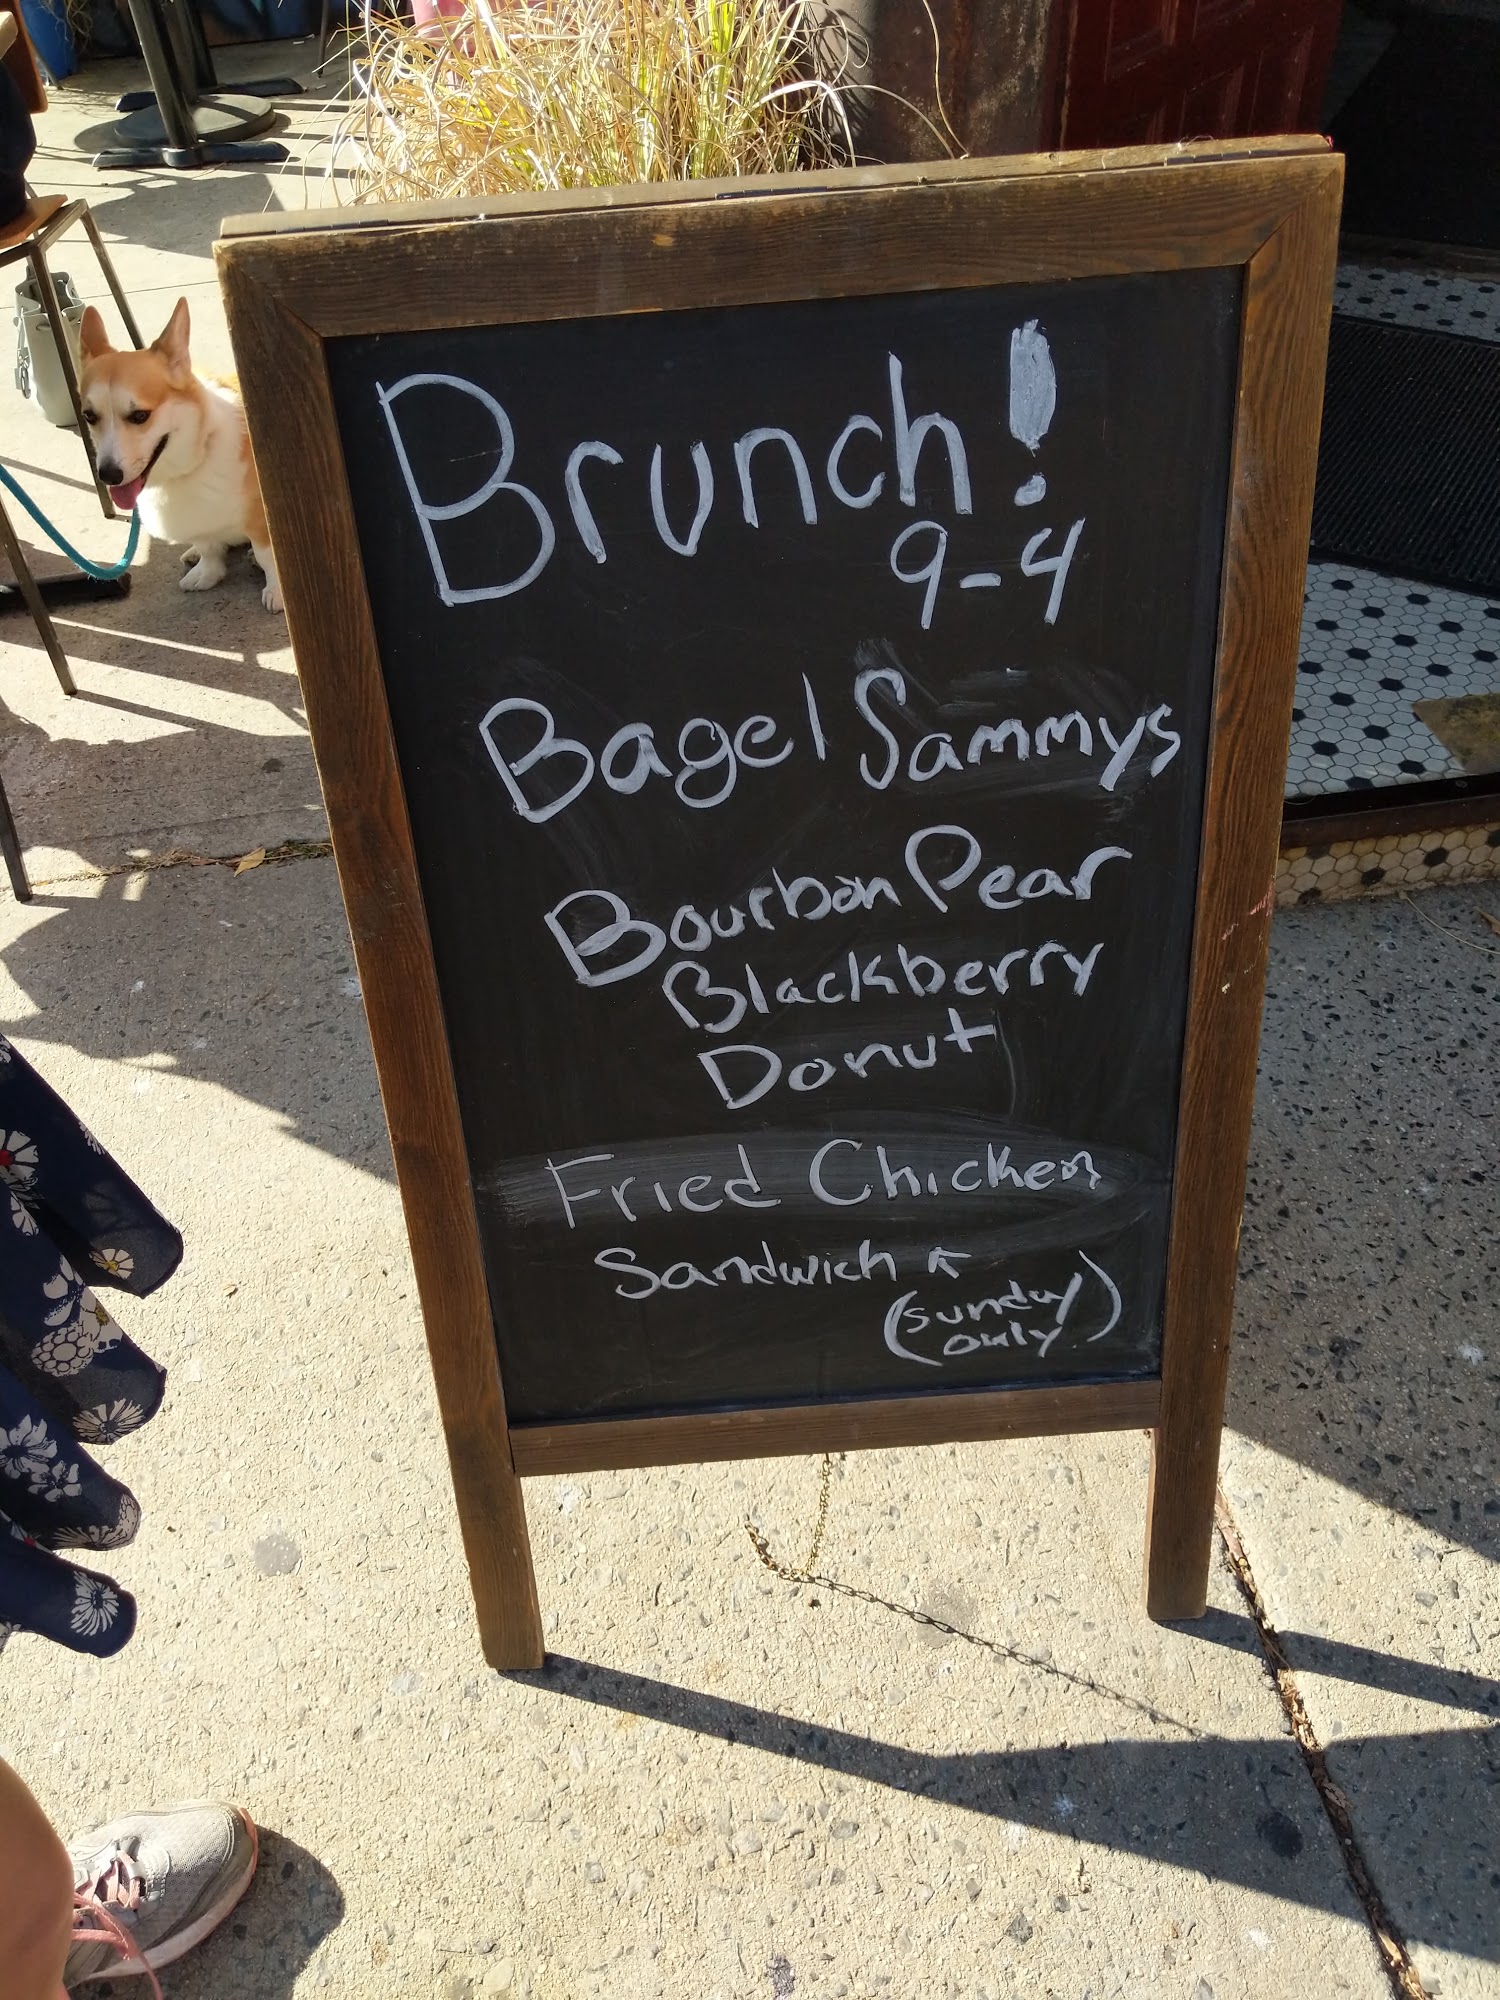 Brunch!
9-4
Bagel Sammys
Bourbon Pear
Blackberry
Donut
Fried Chicken
Sandwich ↖
(sunday
only)